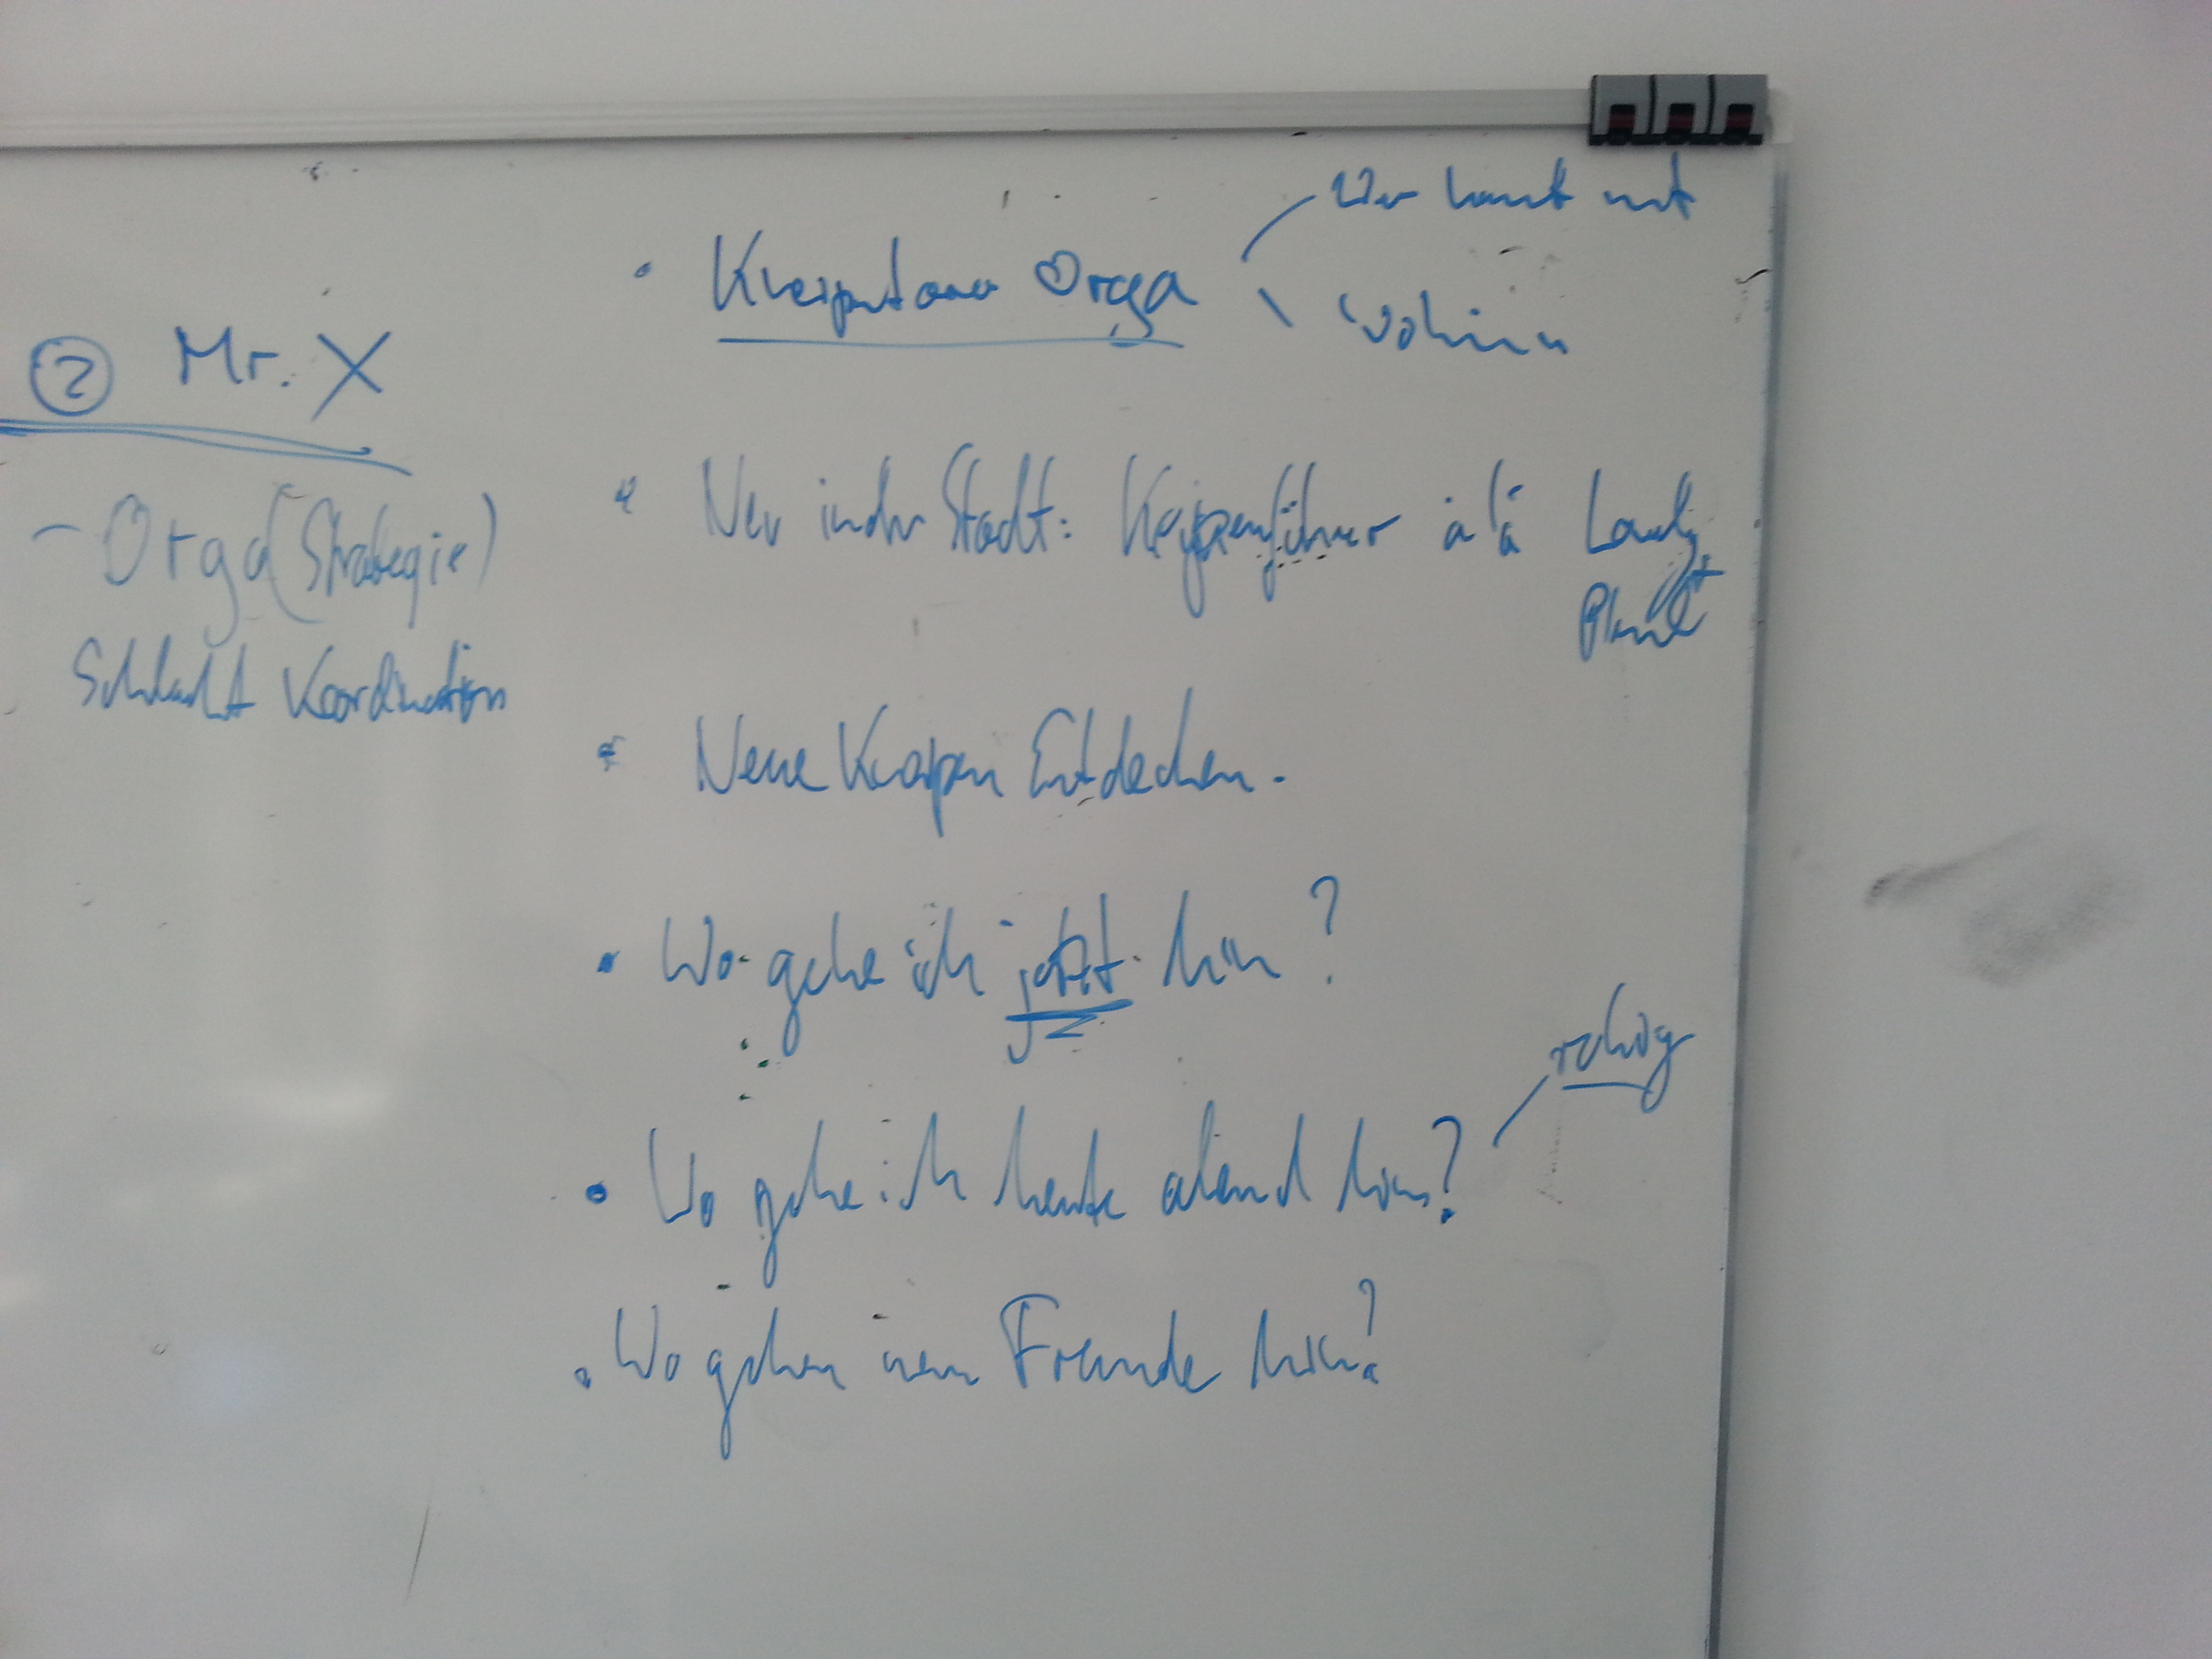 ② Mr. X
- Orga (Strategie)
Schlacht Koordination
• Kneipentour Orga
Wer kommt mit
Wohin
• Neu in der Stadt: Kneipenführer à lá Lonely
Planet
• Neue Kneipen Entdecken.
• Wo gehe ich jetzt hin?
• Wo gehe ich heute abend hin?
ruhig
• Wo gehen meine Freunde hin?